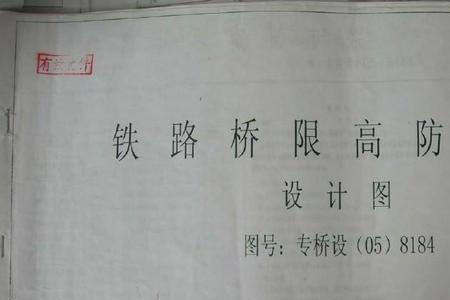 有效文件
铁路桥限高防
设计图
图号：专桥设（05）8184